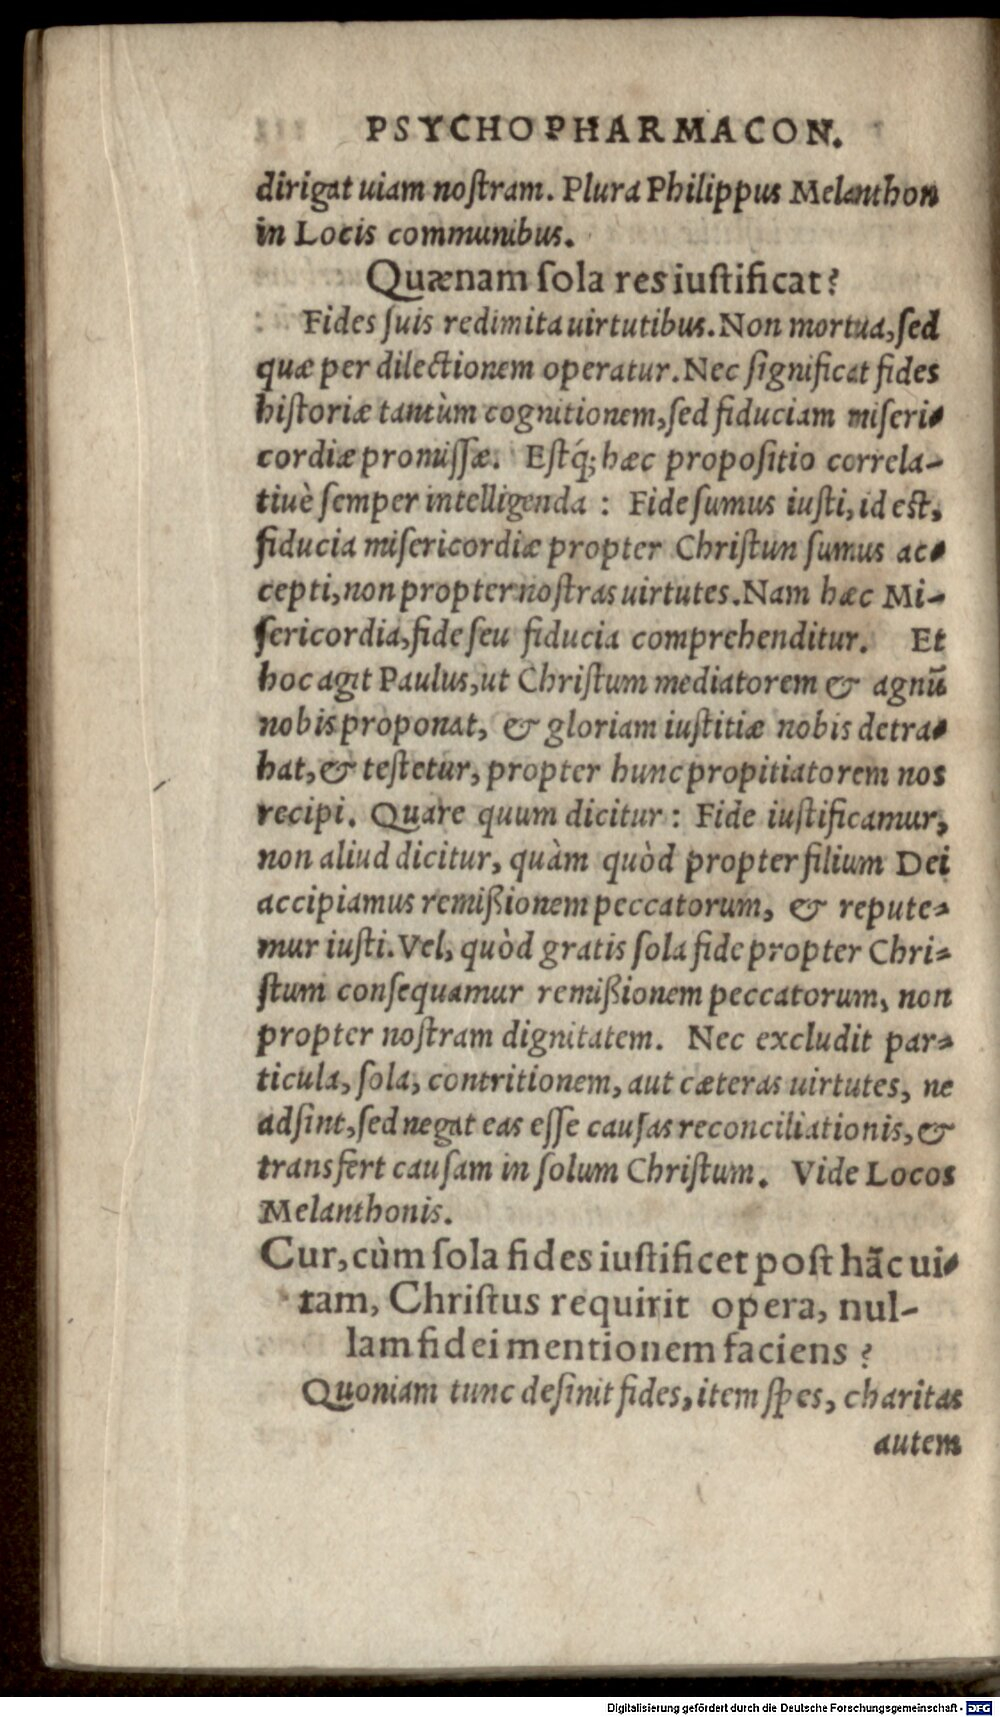 PSYCHOPHARMACON.
dirigat uiam noſtram. Plura Philippus Melanthon
in Locis communibus.
Quænam ſola res iuſtificat?
Fides ſuis redimita uirtutibus. Non mortua, ſed
quæ per dilectionem operatur. Nec ſignificat fides
hiſtoriæ tantùm cognitionem, ſed fiduciam miſeri-
cordiæ promiſſæ. Eſtq́; hæc propoſitio correla-
tiuè ſemper intelligenda : Fide ſumus iuſti, id eſt,
fiducia miſericordiæ propter Chriſtun ſumus ac-
cepti, non propter noſtras uirtutes. Nam hæc Mi-
ſericordia, fide ſeu fiducia comprehenditur. Et
hoc agit Paulus, ut Chriſtum mediatorem & agnū
nobis proponat, & gloriam iuſtitiæ nobis detra-
hat, & teſtetur, propter hunc propitiatorem nos
recipi. Quare quum dicitur : Fide iuſtificamur,
non aliud dicitur, quàm quòd propter filium Dei
accipiamus remißionem peccatorum, & repute-
mur iuſti. Vel, quòd gratis ſola fide propter Chri-
ſtum conſequamur remißionem peccatorum, non
propter noſtram dignitatem. Nec excludit par-
ticula, ſola, contritionem, aut cæteras uirtutes, ne
adſint, ſed negat eas eſſe cauſas reconciliationis, &
transfert cauſam in ſolum Chriſtum. Vide Locos
Melanthonis.
Cur, cùm ſola fides iuſtificet poſt hãc ui-
tam, Chriſtus requirit opera, nul-
lam fidei mentionem faciens ?
Quoniam tunc deſinit fides, item ſpes, charitas
autem
Digitalisierung gefördert durch die Deutsche Forschungsgemeinschaft - DFG